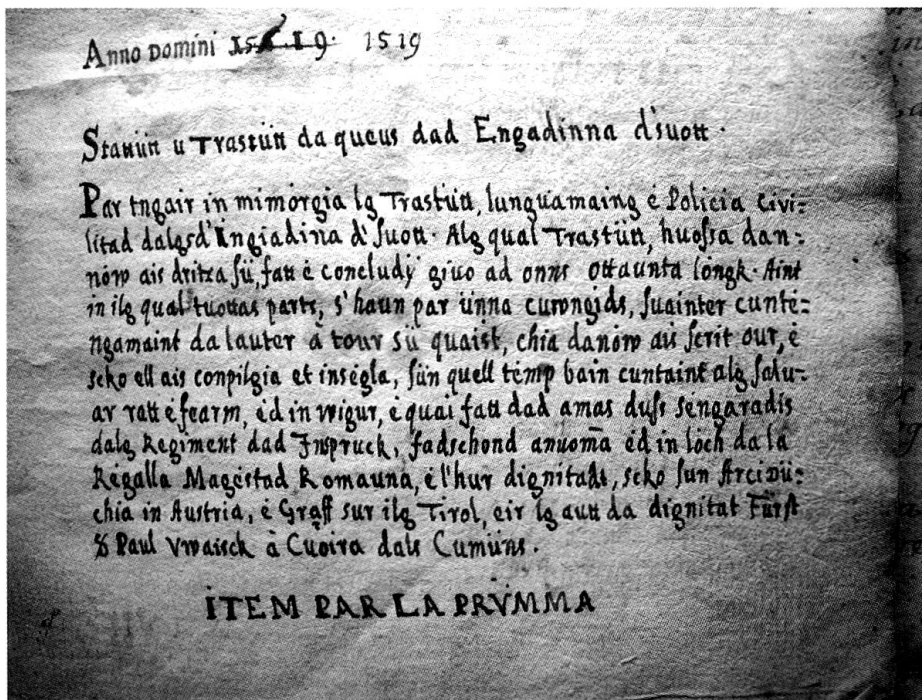 Anno Domini 1519
Stattüt u Trastüt da queus dad Engadinna d'suott.
Par tngair in mimorgia lg Trastütt, lunguamaing è Policia Civi:
litad dalgs d'Ingiadina d'suott. Alg qual Trastütt, huossa dan:
nöw ais dritza sü, fatt è concludÿ giuo ad onns ottaunta longk. Aint
in ilg qual tuottas parts, s'haun par ünna curongids, suainter cuntè:
ngamaint da lauter à tour sü quaist, chia danöw ais scrit our, è
seko ell ais conpilgia et insègla, sün quell temp bain cuntaint alg salu:
ar ratt è fearm, èd in vigur, è quai fatt dad amas duss sengaradis
dalg Regiment dad Inspruck, fadschond anuoma èd in löch da la
Règalla Magèstad Romauna, è l'hur dignitads, seko sun Arcidü:
chia in Austria, è Graff sur ilg Tirol, eir lg autt da dignitat Fürst
Paul Vwaisck à Cuoira dals Cumüns.
ITEM PAR LA PRVMMA